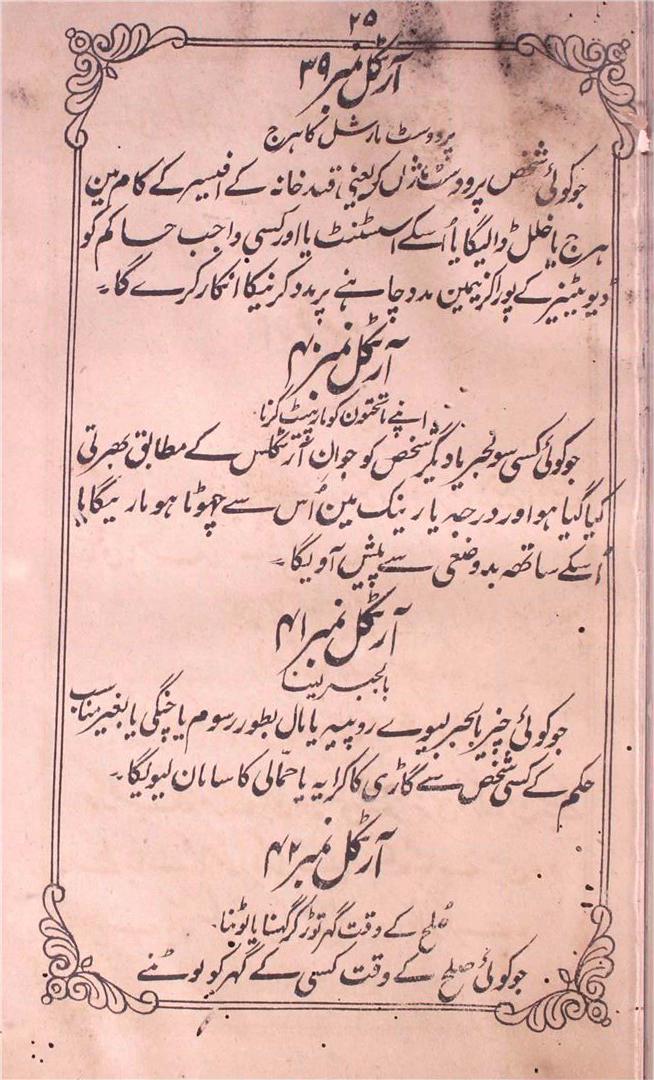 ۲۵
آرٹکل نمبر ۳۹
پرووسٹ مارشل کا ہرج
جو کوئی شخص پرووسٹ مارشل کو یعنی قیدخانہ کے افیسر کے کام مین
ہرج یا خلل ڈالیگا یا اُسکے اسسٹنٹ یا اور کسی واجب حاکم کو
ڈیوٹینیر کے پورا کرنیمین مدد چاہنے پر مدد کرنیکا انکار کرے گا۔
آرٹکل نمبر ۴۰
اپنے ماتحتون کو مارپیٹ کرنا۔
جو کوئی کسی سولجر یا دیگر شخص کو جو ان آرٹکلس کے مطابق بھرتی
کیا گیا ہو اور درجہ یا رینک مین اُس سے چھوٹا ہو ماریگا یا
اُسکے ساتھہ بدوضعی سے پیش آویگا۔
آرٹکل نمبر ۴۱
بالجبر لینا
جو کوئی چیز بالجبر لیوے روپیہ یا مال بطور رسوم یا چنگی یا بغیر مناسب
حکم کے کسی شخص سے گاڑی کا کرایہ یا حمّالی کا سامان لیویگا۔
آرٹکل نمبر ۴۲
صُلح کے وقت گہر توڑ کر گہسنا یا لوٹنا۔
جو کوئی صلح کے وقت کسی کے گہر کو لوٹنے